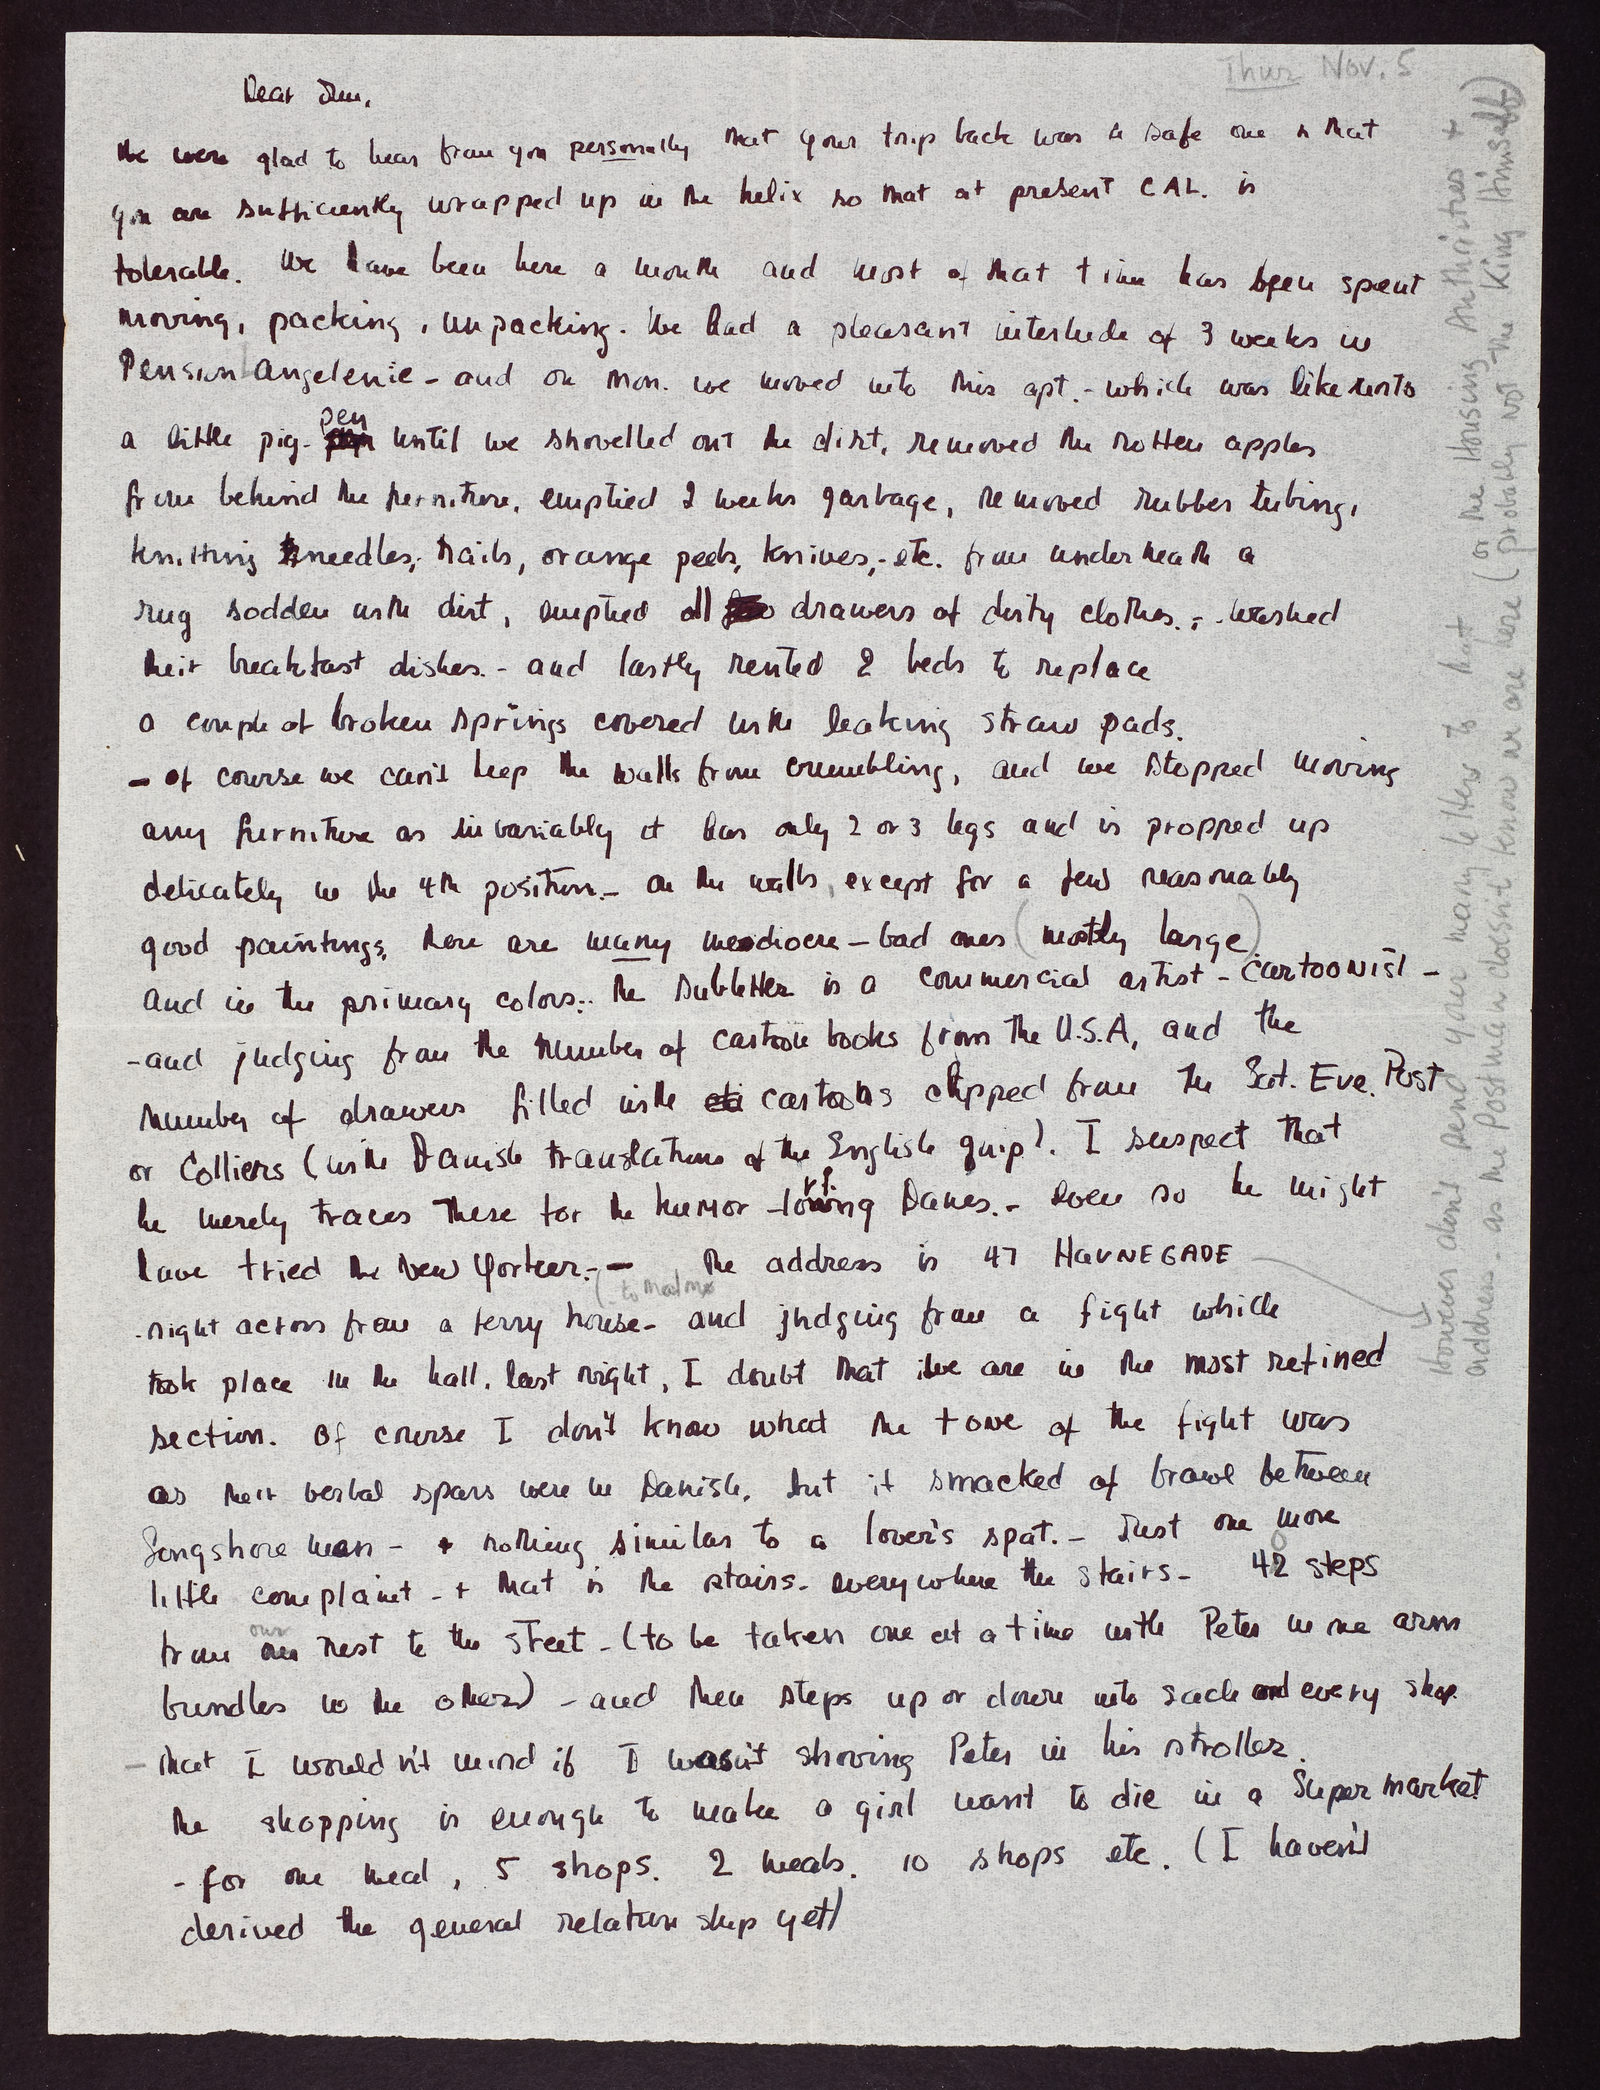 Thur Nov. 5
Dear Jim,
We were glad to hear from you personally that your trip back was a safe one & that
you are sufficiently wrapped up in the helix so that at present CAL. is
tolerable. We have been here a month and most of that time has been spent
moving, packing, unpacking. We had a pleasant interlude of 3 weeks in
Pension Angelenie - and on Mon. we moved into this apt. - which was like unto
a little pig-pen until we shovelled out the dirt, removed the rotten apples
from behind the furniture, emptied 2 weeks garbage, removed rubber tubing,
knitting needles, nails, orange peels, knives, - etc. from underneath a
rug sodden with dirt, emptied all drawers of dirty clothes. - washed
their breakfast dishes. - and lastly rented 2 beds to replace
a couple of broken springs covered with leaking straw pads.
- Of course we can't keep the walls from crumbling, and we stopped moving
any furniture as invariably it has only 2 or 3 legs and is propped up
delicately in the 4th position. - On the walls, except for a few reasonably
good paintings, there are many mediocre - bad ones (mostly large)
and in the primary colors. The subletter is a commercial artist - cartoonist -
- and judging from the number of cartoon books from the U.S.A, and the
number of drawers filled with cartoons clipped from the Sat. Eve. Post
or Colliers (with Danish translations of the English quip). I suspect that
he merely traces these for the humor-loving Danes. - Even so he might
have tried the New Yorker. - The address is 47 HAVNEGADE
(to Malmo
- right across from a ferry house - and judging from a fight which
took place in the hall, last night, I doubt that we are in the most refined
section. Of course I don't know what the tone of the fight was
as their verbal spars were in Danish, but it smacked of brawl between
longshore men - & nothing similar to a lover's spat. - Just one more
little complaint - & that is the stairs - everywhere the stairs - 40 steps
from our nest to the street - (to be taken one at a time with Peter in one arm
bundles in the other) - and then steps up or down into each and every shop
- that I wouldn't mind if I wasn't shoving Peter in his stroller.
The shopping is enough to make a girl want to die in a Supermarket
- for one meal, 5 shops. 2 meals. 10 shops etc. (I haven't
derived the general relationship yet)
However don't send your many letters to that (or the Housing Authorities +
address - as the Postman doesn't know we are here (probably not the King Himself))